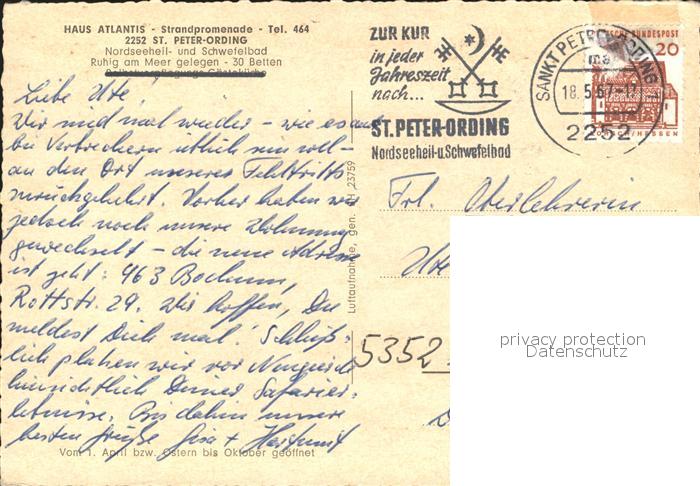 HAUS ATLANTIS - Strandpromenade - Tel. 464
2252 ST. PETER-ORDING
Nordseeheil- und Schwefelbad
Ruhig am Meer gelegen - 30 Betten
Liebe Ute,
Wir sind mal wieder - wie es auch
bei Verbrechern üblich sein soll -
an den Ort unseres Fehltritts
zurückgekehrt. Vorher haben wir
jedoch noch unsere Wohnung
gewechselt - die neue Adresse
ist jetzt: 463 Bochum,
Rottstr. 29. Wir hoffen, Du
meldest Dich mal! Schließ-
lich platzen wir vor Neugierde
hinsichtlich Deiner Safarier-
lebnisse. Bis dahin unsere
besten Grüße Gisa + Hartmut
Vom 1. April bzw. Ostern bis Oktober geöffnet
Luftaufnahme, gen. 23759
ZUR KUR
in jeder
Jahreszeit
nach...
ST. PETER-ORDING
Nordseeheil-u.Schwefelbad
SANKT PETER-ORDING
18.5.67-17
2252
DEUTSCHE BUNDESPOST
20
HESSEN
Frl. Oberlehrerin
Ute
5352
privacy protection
Datenschutz